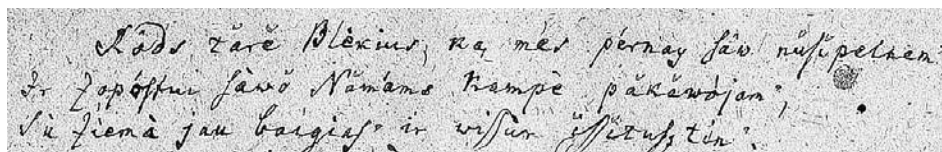 Kods tarė Blėkius, ką mės pérnay sâw nusipelnem
Ir Zópóstui sâwo Nămáms Kampė păkăwójam,
Su Ziemà jau baigias ir wissur issitusztin